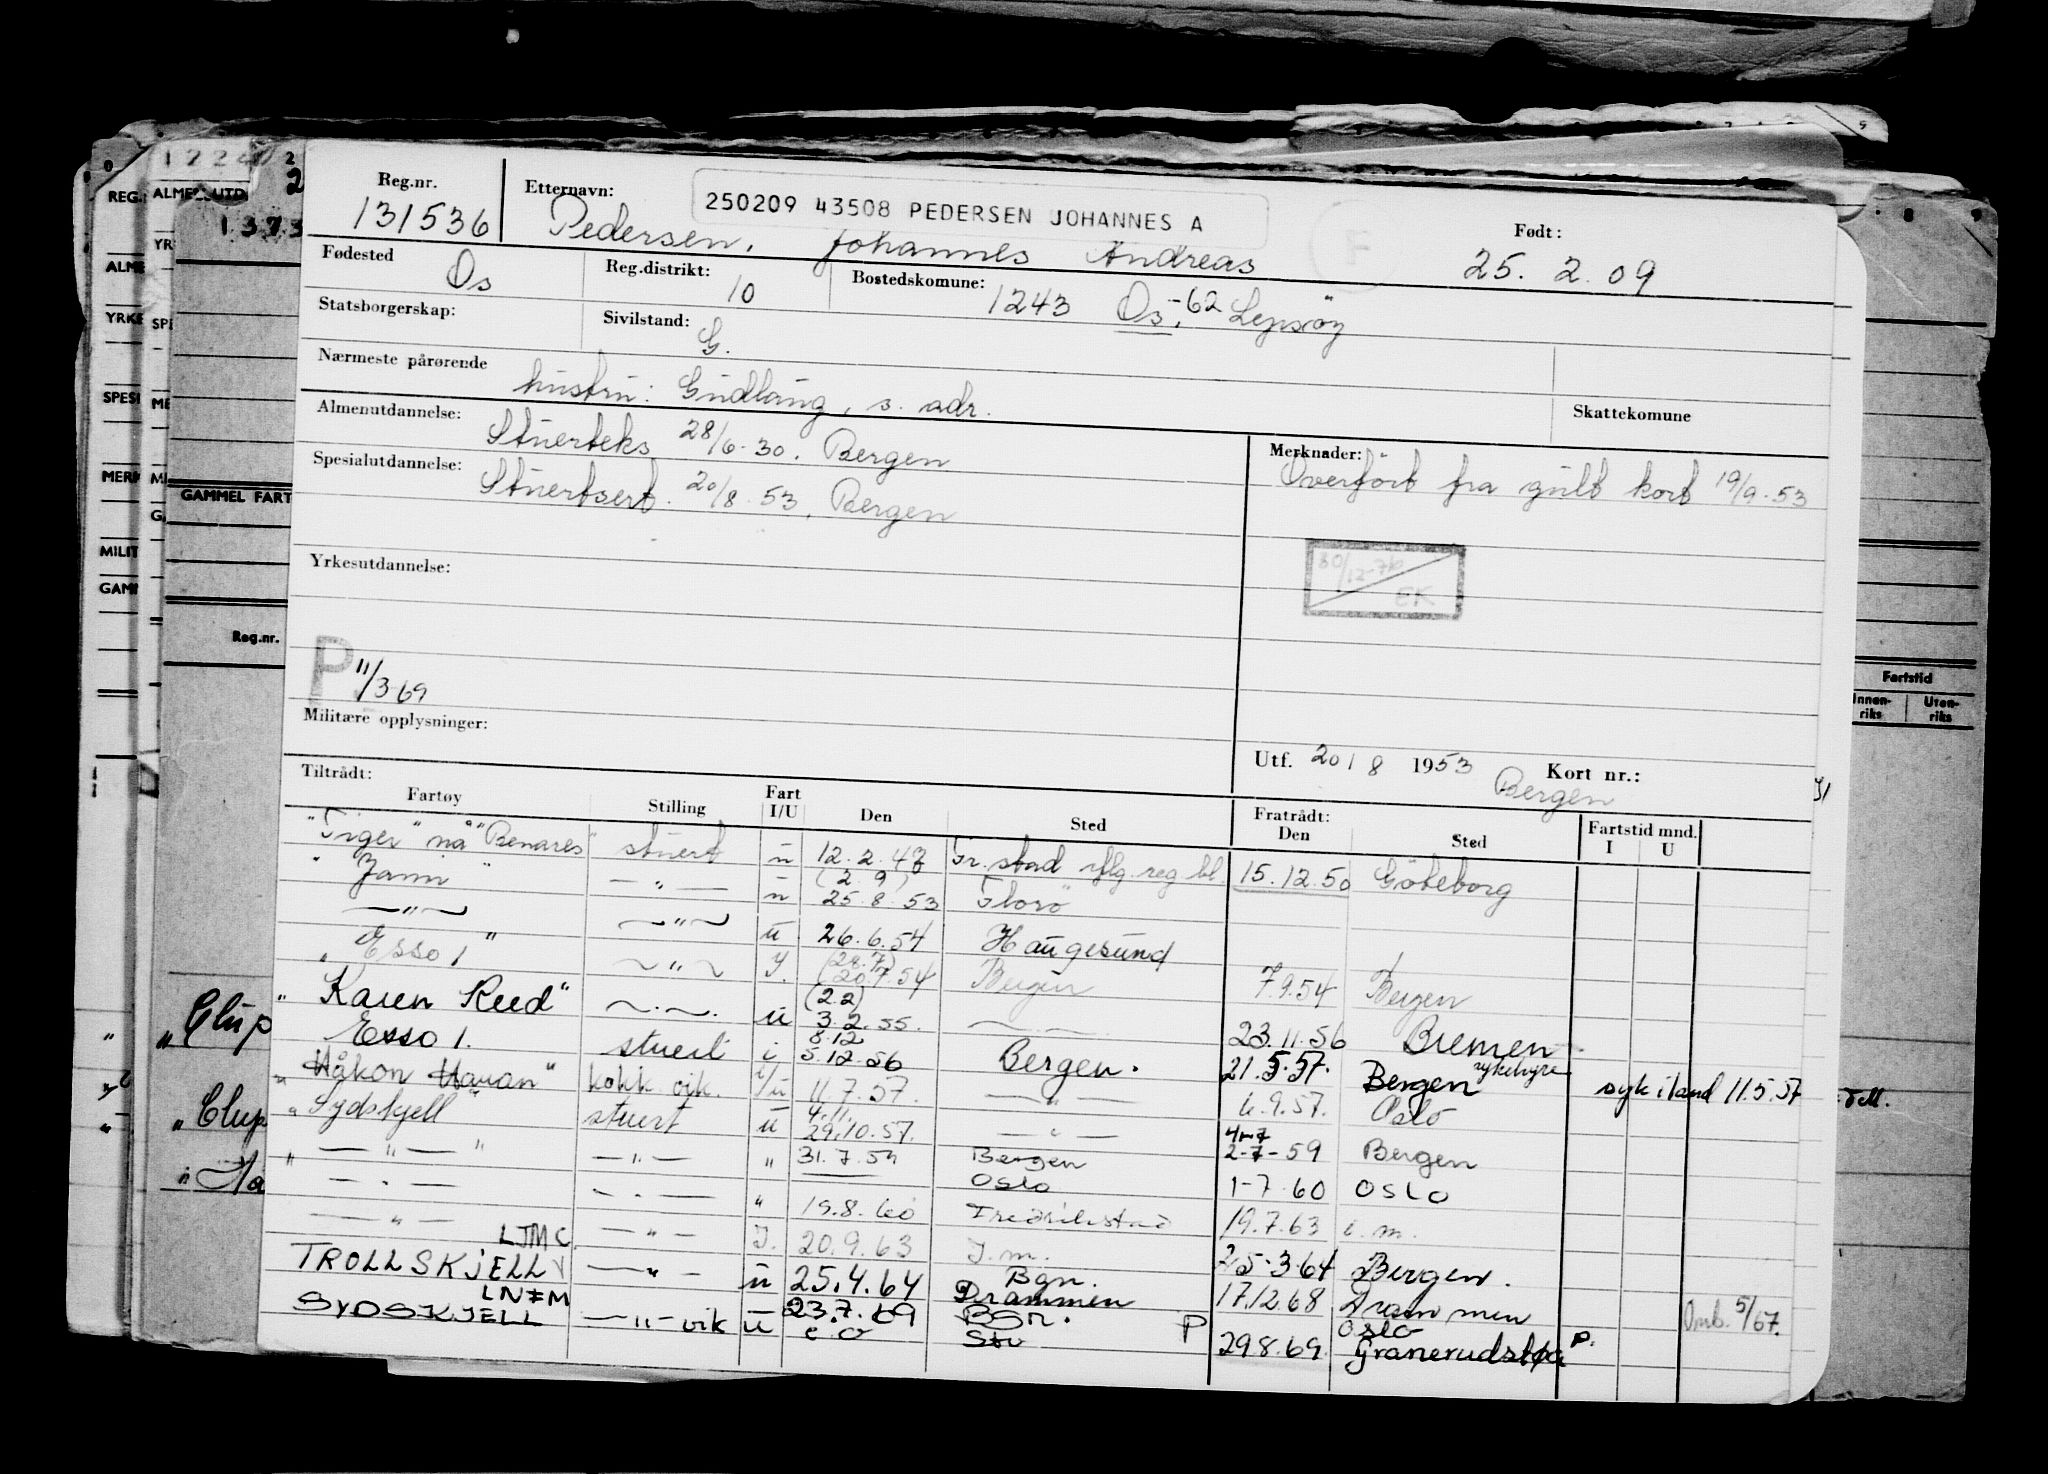 Reg.nr. 131536
Etternavn: Pedersen, Johannes Andreas
250209 43508 PEDERSEN JOHANNES A
F
Født: 25. 2. 09
Fødested Os
Reg.distrikt: 10
Bostedskomune: 1243 Os, -62 Lepsøy
Statsborgerskap:
Sivilstand: G.
Nærmeste pårørende hustru: Gudlaug, s. adr.
Skattekomune
Almenutdannelse: Stuerteks 28/6-30. Bergen
Spesialutdannelse: Stuertsert. 20/8.53, Bergen
Merknader: Overført fra gult kort 19/9.53
30/12-76 EK
Yrkesutdannelse:
P 11/3-69
Militære opplysninger:
Utf. 20/8 1953 Kort nr.:
Bergen
Tiltrådt: Fratrådt:
Fartøy Stilling Fart I/U Den Sted Den Sted Fartstid mnd. I U
"Tiger" nå "Benares" stuert u 12.2.47 Fr.stad iflg. reg bl 15.12.50 Göteborg
" " — " — u (2.9) 25.8.53 Florø
— " — — " — u 26.6.54 Haugesund
" Esso 1 " — " — (20.7.54 Bergen 7.9.54 Bergen
" Karen Reed" — " — u (2.2) 3.2.55. — " — 23.11.56 Bremen
Esso 1. stuert i 8.12 5.12.56 Bergen. 21.5.57. Bergen sykehyre syk i land 11.5.57
" Håkon " kokk vik. i/u 11.7.57. — " — 6.9.57. Oslo
" Sydskjell " stuert u 4.11. 29.10.57. — " — 4-7 2-7-59 Bergen
" — " — " — " — " 31.7.59 Bergen Oslo 1-7-60 OSLO
— " — — " — " 19.8.60 Fredrikstad 19.7.63 i.m.
— " — — " — I. 20.9.63 I.m. 25-3-64 Bergen.
LJMC
TROLLSKJELL — " — u 25.4.64 Bgn. Drammen 17.12.68 Drammen Omb. 5/67.
LNEM
SYDSKJELL — " — vik u 23.7.69 Bgn. P 29.8.69. Oslo P.
REG. ALMENUTD
GAMMEL FART
Reg.nr.
Fartstid
Innen-riks Uten-riks